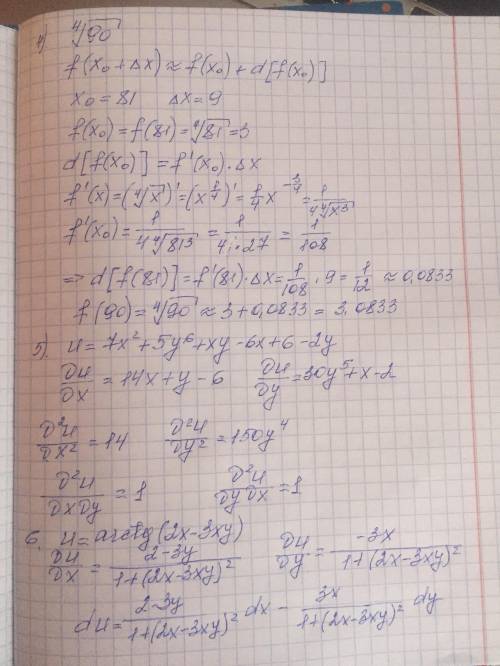 4) ∜90
f(x₀+Δx)≈f(x₀)+d[f(x₀)]
x₀=81 Δx=9
f(x₀)=f(81)=∜81=3
d[f(x₀)]=f'(x₀)·Δx
f'(x)=(∜x)'=(x^(1/4))'=1/4 x^(-3/4)=1/(4∜x³)
f'(x₀)=1/(4∜81³)=1/(4·27)=1/108
=> d[f(81)]=f'(81)·Δx=1/108·9=1/12≈0,0833
f(90)=∜90≈3+0,0833=3,0833
5) u=7x²+5y⁶+xy-6x+6-2y
∂u/∂x=14x+y-6 ∂u/∂y=30y⁵+x-2
∂²u/∂x²=14 ∂²u/∂y²=150y⁴
∂²u/∂x∂y=1 ∂²u/∂y∂x=1
6. u=arctg(2x-3xy)
∂u/∂x=(2-3y)/(1+(2x-3xy)²) ∂u/∂y=(-3x)/(1+(2x-3xy)²)
du=(2-3y)/(1+(2x-3xy)²)dx-(3x)/(1+(2x-3xy)²)dy